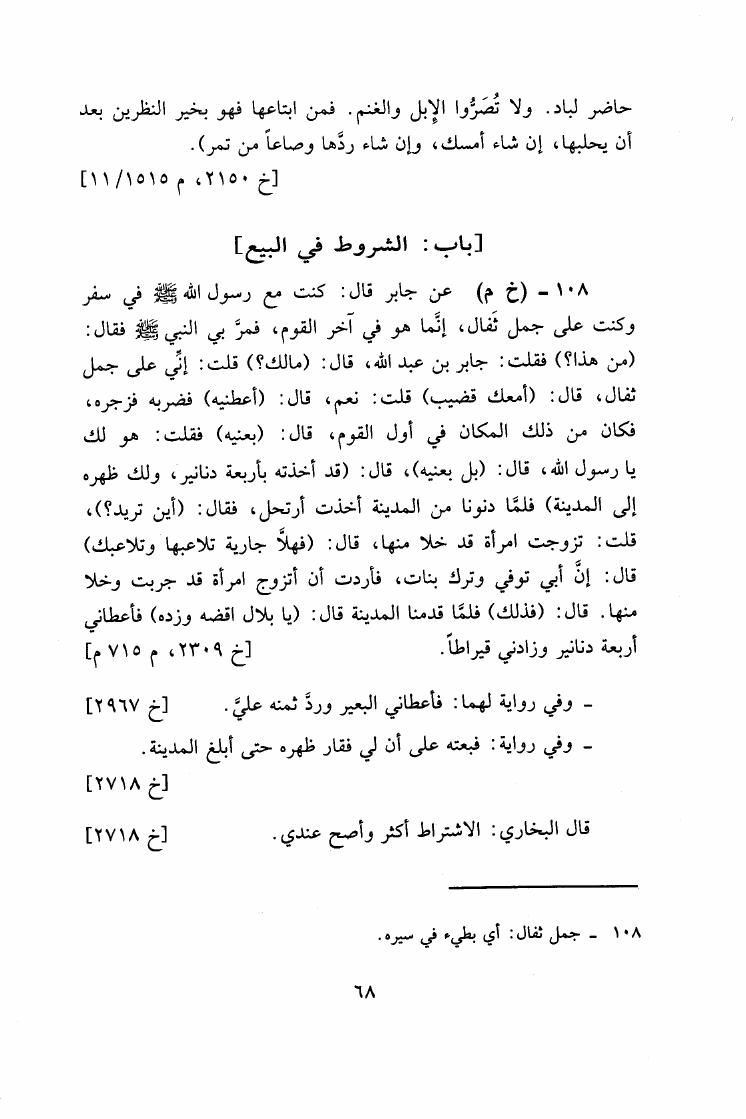 حاضر لباد. ولا تُصَرُّوا الإِبل والغنم. فمن ابتاعها فهو بخير النظرين بعد
أن يحلبها، إن شاء أمسك، وإن شاء ردَّها وصاعاً من تمر).
[خ ٢١٥٠، م ١٥١٥/١١]
[باب: الشروط في البيع]
١٠٨ - (خ م) عن جابر قال: كنت مع رسول الله ﷺ في سفر
وكنت على جمل ثَفال، إنَّما هو في آخر القوم، فمرَّ بي النبي ﷺ فقال:
(من هذا؟) فقلت: جابر بن عبد الله، قال: (مالك؟) قلت: إنِّي على جمل
ثفال، قال: (أمعك قضيب) قلت: نعم، قال: (أعطنيه) فضربه فزجره،
فكان من ذلك المكان في أول القوم، قال: (بعنيه) فقلت: هو لك
يا رسول الله، قال: (بل بعنيه)، قال: (قد أخذته بأربعة دنانير، ولك ظهره
إلى المدينة) فلمَّا دنونا من المدينة أخذت أرتحل، فقال: (أين تريد؟)،
قلت: تزوجت امرأة قد خلا منها، قال: (فهلاَّ جارية تلاعبها وتلاعبك)
قال: إنَّ أبي توفي وترك بنات، فأردت أن أتزوج امرأة قد جربت وخلا
منها. قال: (فذلك) فلمَّا قدمنا المدينة قال: (يا بلال اقضه وزده) فأعطاني
أربعة دنانير وزادني قيراطاً. [خ ٢٣٠٩، م ٧١٥ م]
- وفي رواية لهما: فأعطاني البعير وردَّ ثمنه عليَّ. [خ ٢٩٦٧]
- وفي رواية: فبعته على أن لي فقار ظهره حتى أبلغ المدينة.
[خ ٢٧١٨]
قال البخاري: الاشتراط أكثر وأصح عندي. [خ ٢٧١٨]
١٠٨ - جمل ثفال: أي بطيء في سيره.
٦٨